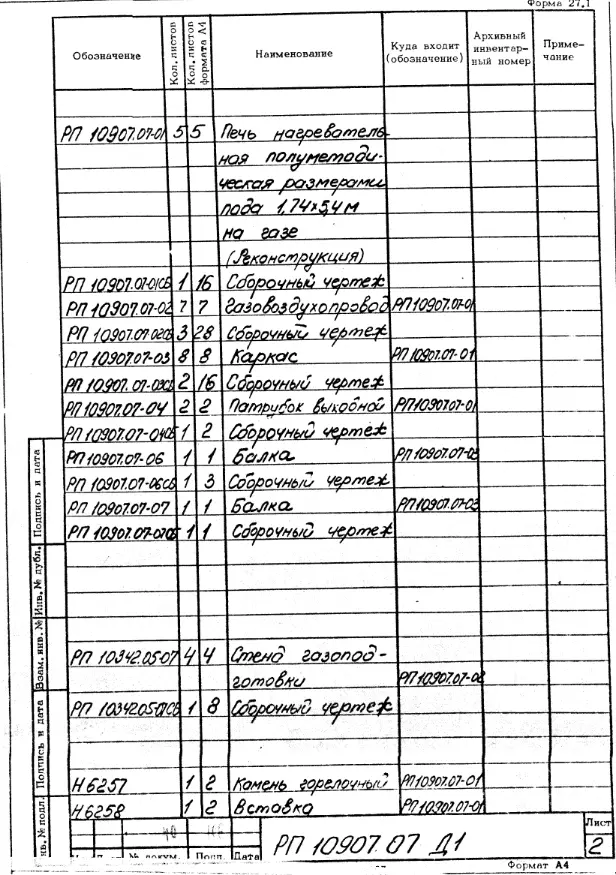 Форма 27.1
Обозначение Кол. листов Кол. листов формата А4 Наименование Куда входит (обозначение) Архивный инвентарный номер Примечание
РП 10907.07-01 5 5 Печь нагреватель-
ная полуметоди-
ческая размерами
пода 1,74х5,4 м
на газе
(Реконструкция)
РП 10907.07-01СБ 1 16 Сборочный чертеж
РП 10907.07-02 7 7 Газовоздухопровод РП10907.07-01
РП 10907.07-02СБ 3 28 Сборочный чертеж
РП 10907.07-03 8 8 Каркас РП 10907.07-01
РП 10907.07-03СБ 2 16 Сборочный чертеж
РП 10907.07-04 2 2 Патрубок выходной РП10907.07-01
РП 10907.07-04СБ 1 2 Сборочный чертеж
РП 10907.07-06 1 1 Балка РП 10907.07-03
РП 10907.07-06СБ 1 3 Сборочный чертеж
РП 10907.07-07 1 1 Балка РП10907.07-03
РП 10907.07-07СБ 1 1 Сборочный чертеж
РП 10342.05-07 4 4 Стенд газопод-
готовки РП 10907.07-02
РП 10342.05-07СБ 1 8 Сборочный чертеж
Н6257 1 2 Камень горелочный РП10907.07-01
Н6258 1 2 Вставка РП10907.07-01
Подпись и дата
Инв. № дубл.
Взам. инв. №
Подпись и дата
Инв. № подл.
№ докум. Подп. Дата
РП 10907.07 Д1
Лист
2
Формат А4